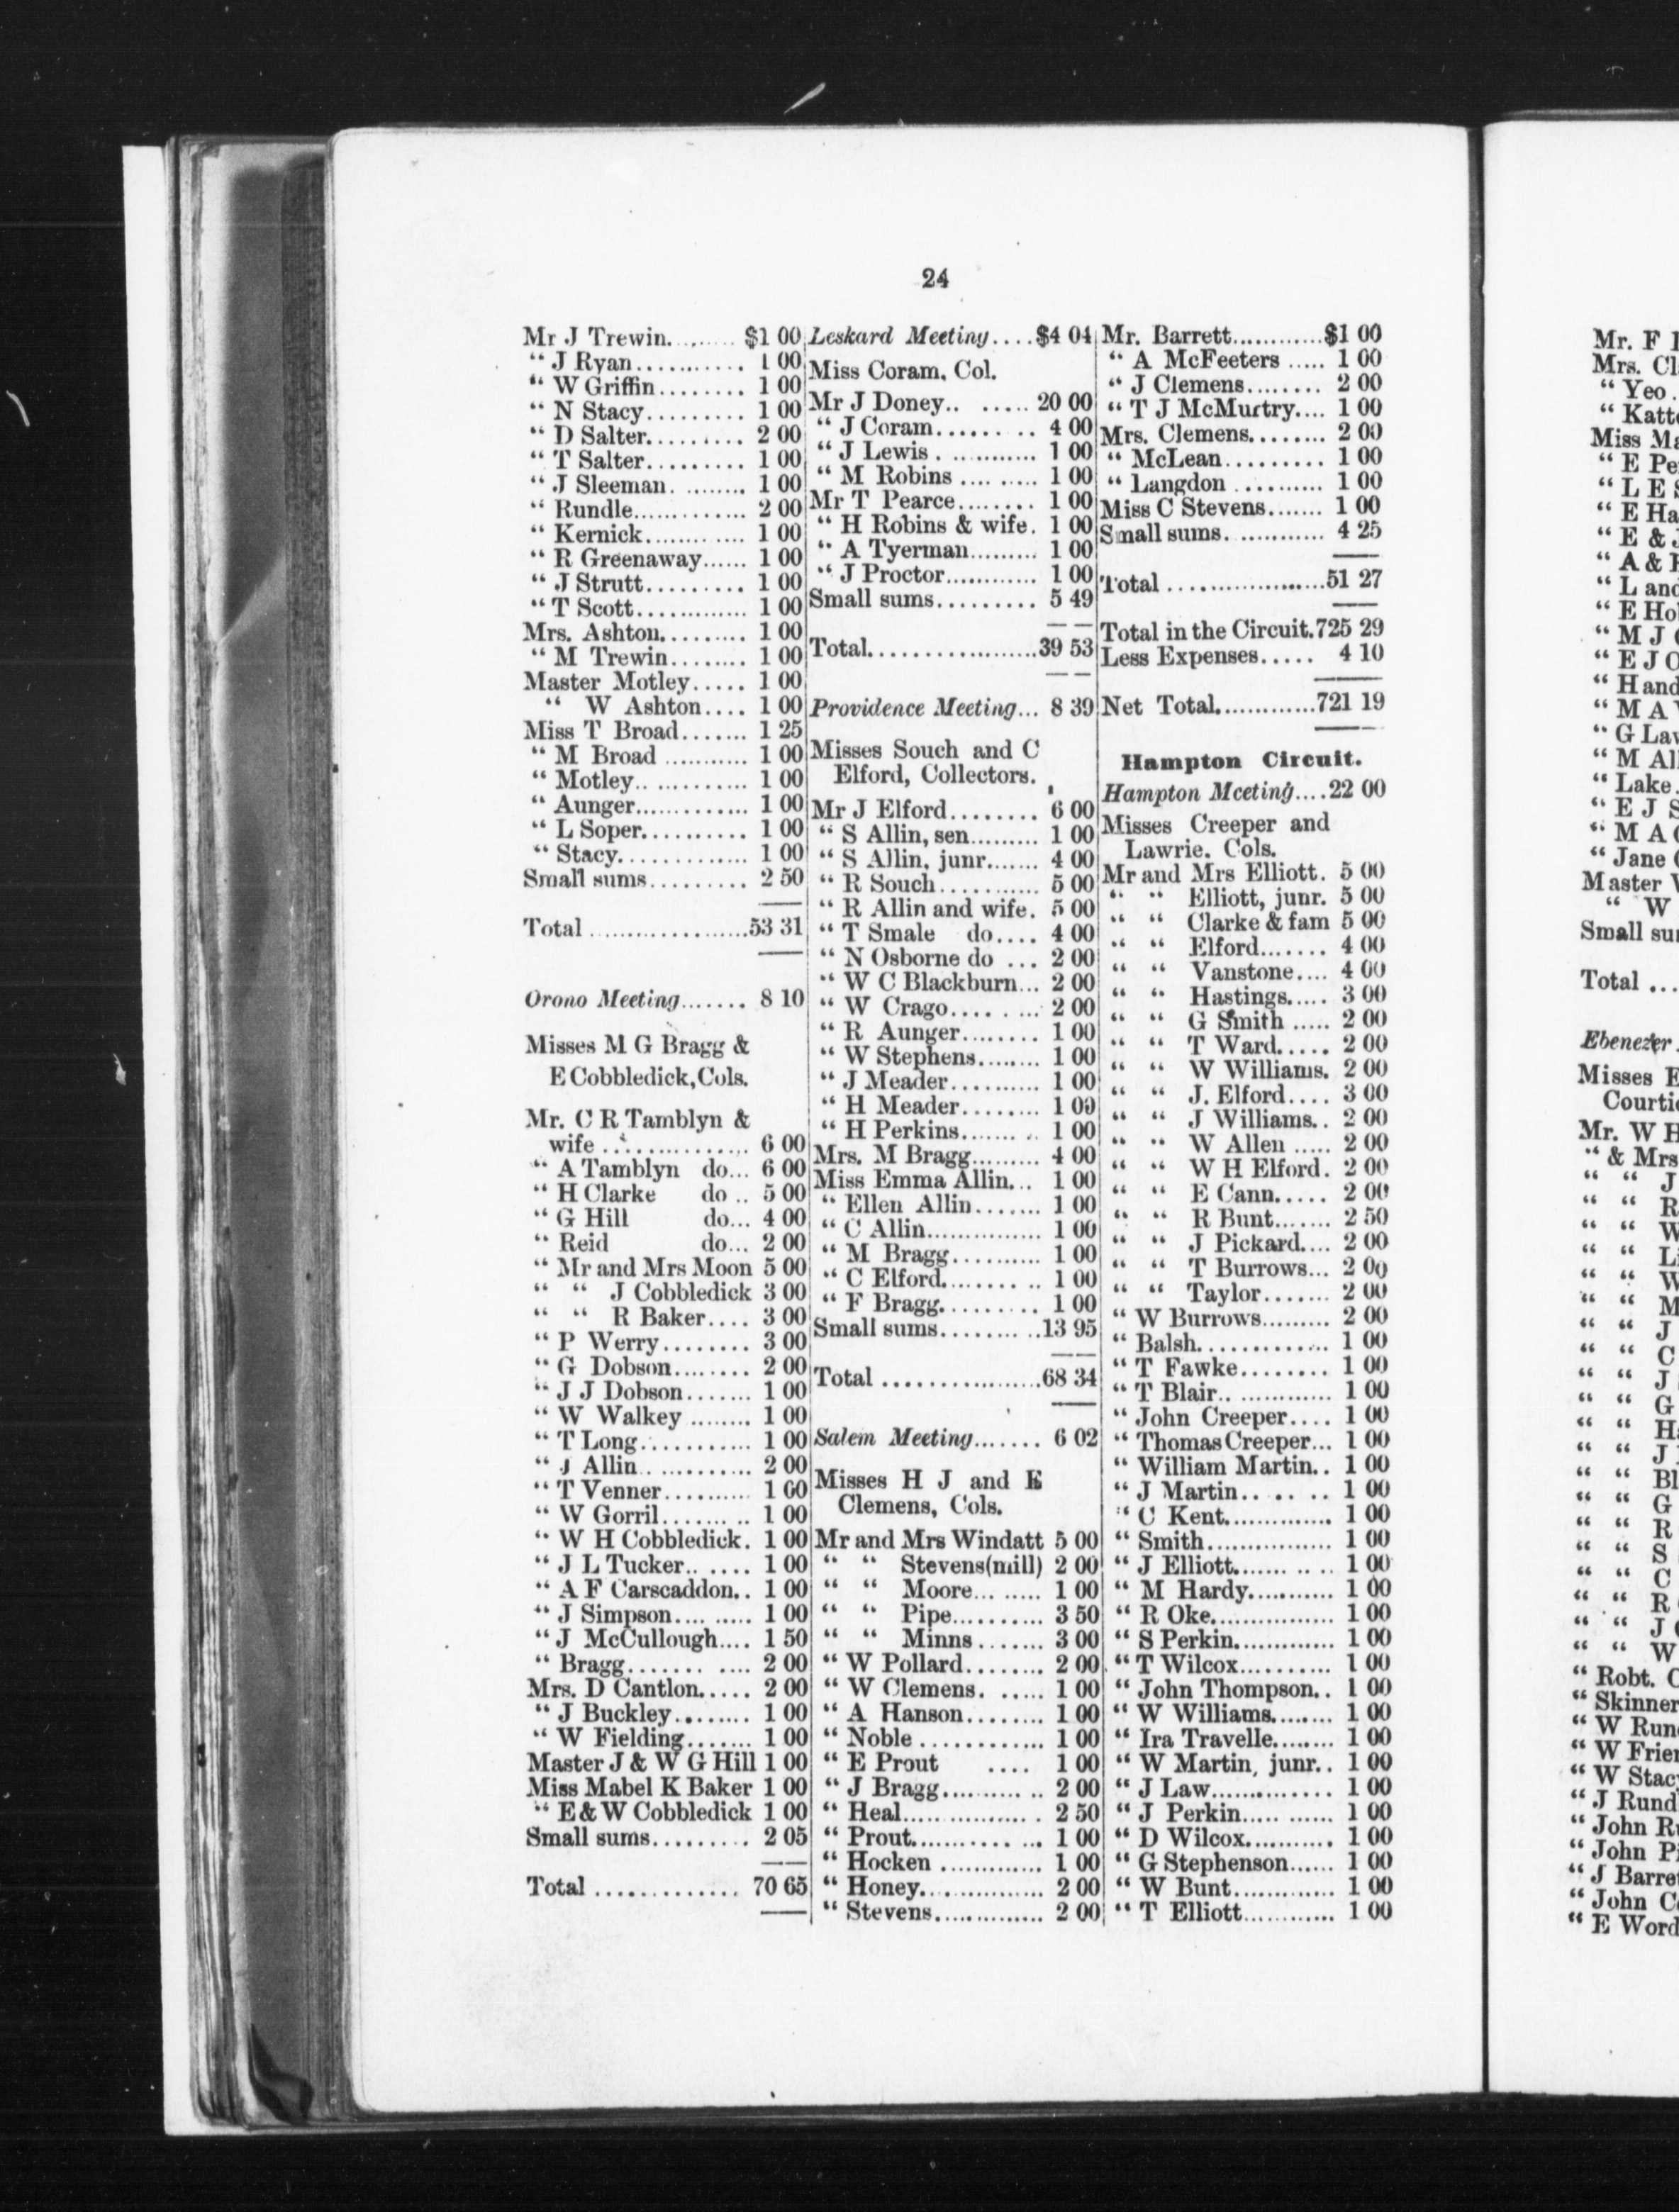 24
Mr J Trewin.......... $1 00
“ J Ryan........... 1 00
“ W Griffin......... 1 00
“ N Stacy.......... 1 00
“ D Salter.......... 2 00
“ T Salter.......... 1 00
“ J Sleeman. ........ 1 00
“ Rundle............. 2 00
“ Kernick............ 1 00
“ R Greenaway...... 1 00
“ J Strutt.......... 1 00
“ T Scott............. 1 00
Mrs. Ashton.......... 1 00
“ M Trewin........ 1 00
Master Motley..... 1 00
“ W Ashton.... 1 00
Miss T Broad....... 1 25
“ M Broad ........... 1 00
“ Motley.. ........... 1 00
“ Aunger............ 1 00
“ L Soper........... 1 00
“ Stacy............. 1 00
Small sums.......... 2 50
Total ..................53 31
Orono Meeting....... 8 10
Misses M G Bragg &
E Cobbledick, Cols.
Mr. C R Tamblyn &
wife ............... 6 00
“ A Tamblyn do... 6 00
“ H Clarke do .. 5 00
“ G Hill do... 4 00
“ Reid do... 2 00
“ Mr and Mrs Moon 5 00
“ “ J Cobbledick 3 00
“ “ R Baker.... 3 00
“ P Werry......... 3 00
“ G Dobson........ 2 00
“ J J Dobson....... 1 00
“ W Walkey ........ 1 00
“ T Long............ 1 00
“ J Allin.. .......... 2 00
“ T Venner.......... 1 00
“ W Gorril........ .. 1 00
“ W H Cobbledick. 1 00
“ J L Tucker.. ..... 1 00
“ A F Carscaddon.. 1 00
“ J Simpson.... ..... 1 00
“ J McCullough.... 1 50
“ Bragg....... .... 2 00
Mrs. D Cantlon..... 2 00
“ J Buckley........ 1 00
“ W Fielding....... 1 00
Master J & W G Hill 1 00
Miss Mabel K Baker 1 00
“ E & W Cobbledick 1 00
Small sums.......... 2 05
Total .............. 70 65
Leskard Meeting....$4 04
Miss Coram, Col.
Mr J Doney.. ...... 20 00
“ J Coram....... .. 4 00
“ J Lewis . ........... 1 00
“ M Robins .... ..... 1 00
Mr T Pearce........ 1 00
“ H Robins & wife. 1 00
“ A Tyerman......... 1 00
“ J Proctor............ 1 00
Small sums.......... 5 49
Total...................39 53
Providence Meeting... 8 39
Misses Souch and C
Elford, Collectors.
Mr J Elford......... 6 00
“ S Allin, sen......... 1 00
“ S Allin, junr....... 4 00
“ R Souch............ 5 00
“ R Allin and wife. 5 00
“ T Smale do.... 4 00
“ N Osborne do ... 2 00
“ W C Blackburn... 2 00
“ W Crago..... .... 2 00
“ R Aunger......... 1 00
“ W Stephens........ 1 00
“ J Meader.......... 1 00
“ H Meader......... 1 00
“ H Perkins....... .. 1 00
Mrs. M Bragg......... 4 00
Miss Emma Allin... 1 00
“ Ellen Allin....... 1 00
“ C Allin............... 1 00
“ M Bragg.......... 1 00
“ C Elford......... .. 1 00
“ F Bragg........... 1 00
Small sums........ ..13 95
Total ..................68 34
Salem Meeting....... 6 02
Misses H J and E
Clemens, Cols.
Mr and Mrs Windatt 5 00
“ “ Stevens(mill) 2 00
“ “ Moore... ..... 1 00
“ “ Pipe.......... 3 50
“ “ Minns ....... 3 00
“ W Pollard........ 2 00
“ W Clemens. ..... 1 00
“ A Hanson........ 1 00
“ Noble ............ 1 00
“ E Prout .... 1 00
“ J Bragg.......... .. 2 00
“ Heal............... 2 50
“ Prout........... ... 1 00
“ Hocken ............ 1 00
“ Honey.............. 2 00
“ Stevens.............. 2 00
Mr. Barrett............$1 00
“ A McFeeters ..... 1 00
“ J Clemens........ 2 00
“ T J McMurtry.... 1 00
Mrs. Clemens........ 2 00
“ McLean.......... 1 00
“ Langdon .......... 1 00
Miss C Stevens....... 1 00
Small sums. ........... 4 25
Total ..................51 27
Total in the Circuit.725 29
Less Expenses..... 4 10
Net Total.............721 19
Hampton Circuit.
Hampton Meeting....22 00
Misses Creeper and
Lawrie. Cols.
Mr and Mrs Elliott. 5 00
“ “ Elliott, junr. 5 00
“ “ Clarke & fam 5 00
“ “ Elford....... 4 00
“ “ Vanstone.... 4 00
“ “ Hastings..... 3 00
“ “ G Smith ..... 2 00
“ “ T Ward..... 2 00
“ “ W Williams. 2 00
“ “ J. Elford.... 3 00
“ “ J Williams.. 2 00
“ “ W Allen ..... 2 00
“ “ W H Elford. 2 00
“ “ E Cann..... 2 00
“ “ R Bunt....... 2 50
“ “ J Pickard.... 2 00
“ “ T Burrows... 2 00
“ “ Taylor....... 2 00
“ W Burrows......... 2 00
“ Balsh.............. 1 00
“ T Fawke......... 1 00
“ T Blair.. ............ 1 00
“ John Creeper.... 1 00
“ Thomas Creeper... 1 00
“ William Martin.. 1 00
“ J Martin.. .. .. .. 1 00
“ C Kent............. 1 00
“ Smith................ 1 00
“ J Elliott........ .. .. 1 00
“ M Hardy........... 1 00
“ R Oke................ 1 00
“ S Perkin............. 1 00
“ T Wilcox.......... 1 00
“ John Thompson.. 1 00
“ W Williams........ 1 00
“ Ira Travelle........ 1 00
“ W Martin, junr.. 1 00
“ J Law............... 1 00
“ J Perkin..... ...... 1 00
“ D Wilcox........... 1 00
“ G Stephenson...... 1 00
“ W Bunt............. 1 00
“ T Elliott............ 1 00
Mr. F
Mrs.
“ Yeo.
“
Miss
“ E
“ L E
“ E
“ E &
“ A &
“ L and
“ E
“ M J
“ E J
“
“ M A
“ G
“ M
“ Lake.
“ E J S
“ M A
“ Jane
Master
“ W
Small
Total ...
Ebenezer
Misses
Mr. W
“ & Mrs
“ “ J
“ “ R
“ “ W
“ “
“ “ W
“ “
“ “ J
“ “ C
“ “ J
“ “ G
“ “
“ “ J
“ “
“ “ G
“ “ R
“ “ S
“ “ C
“ “ R
“ “ J
“ “ W
“ Robt.
“ Skinner
“ W
“ W
“ W
“ J
“ John
“ John
“ J
“ John
“ E